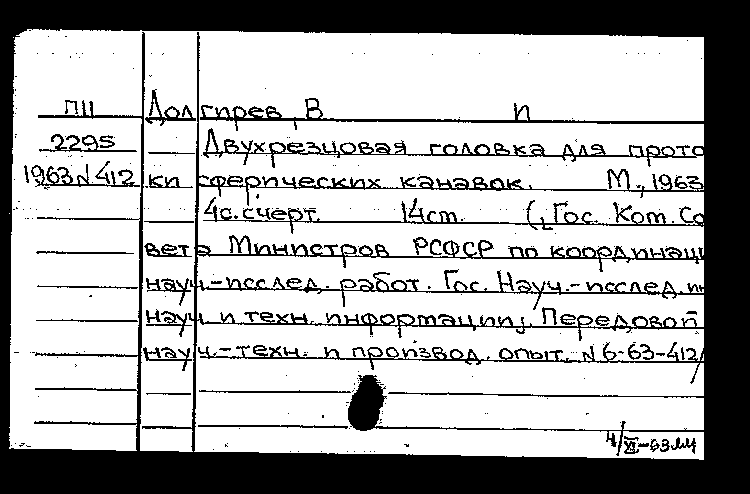 П11 Долгирев, В П
2295 Двухрезцовая головка для прото
1963 N 412 ки сферических канавок. М., 1963
4с. с черт. 14см. (Гос. Ком. Со
вета Министров РСФСР по координаци
науч.-исслед. работ. Гос. Науч.-исслед. ин
науч и техн. информации. Передовой
науч.-техн. и производ. опыт. N 6-63-412/
4/XI-63